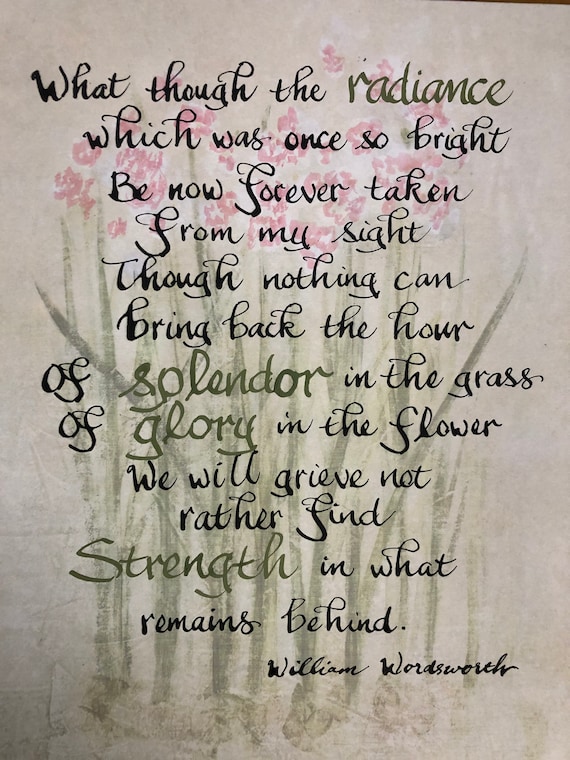 What though the radiance
which was once so bright
Be now forever taken
From my sight
Though nothing can
bring back the hour
Of splendor in the grass
Of glory in the flower
We will grieve not
rather find
Strength in what
remains behind.
William Wordsworth